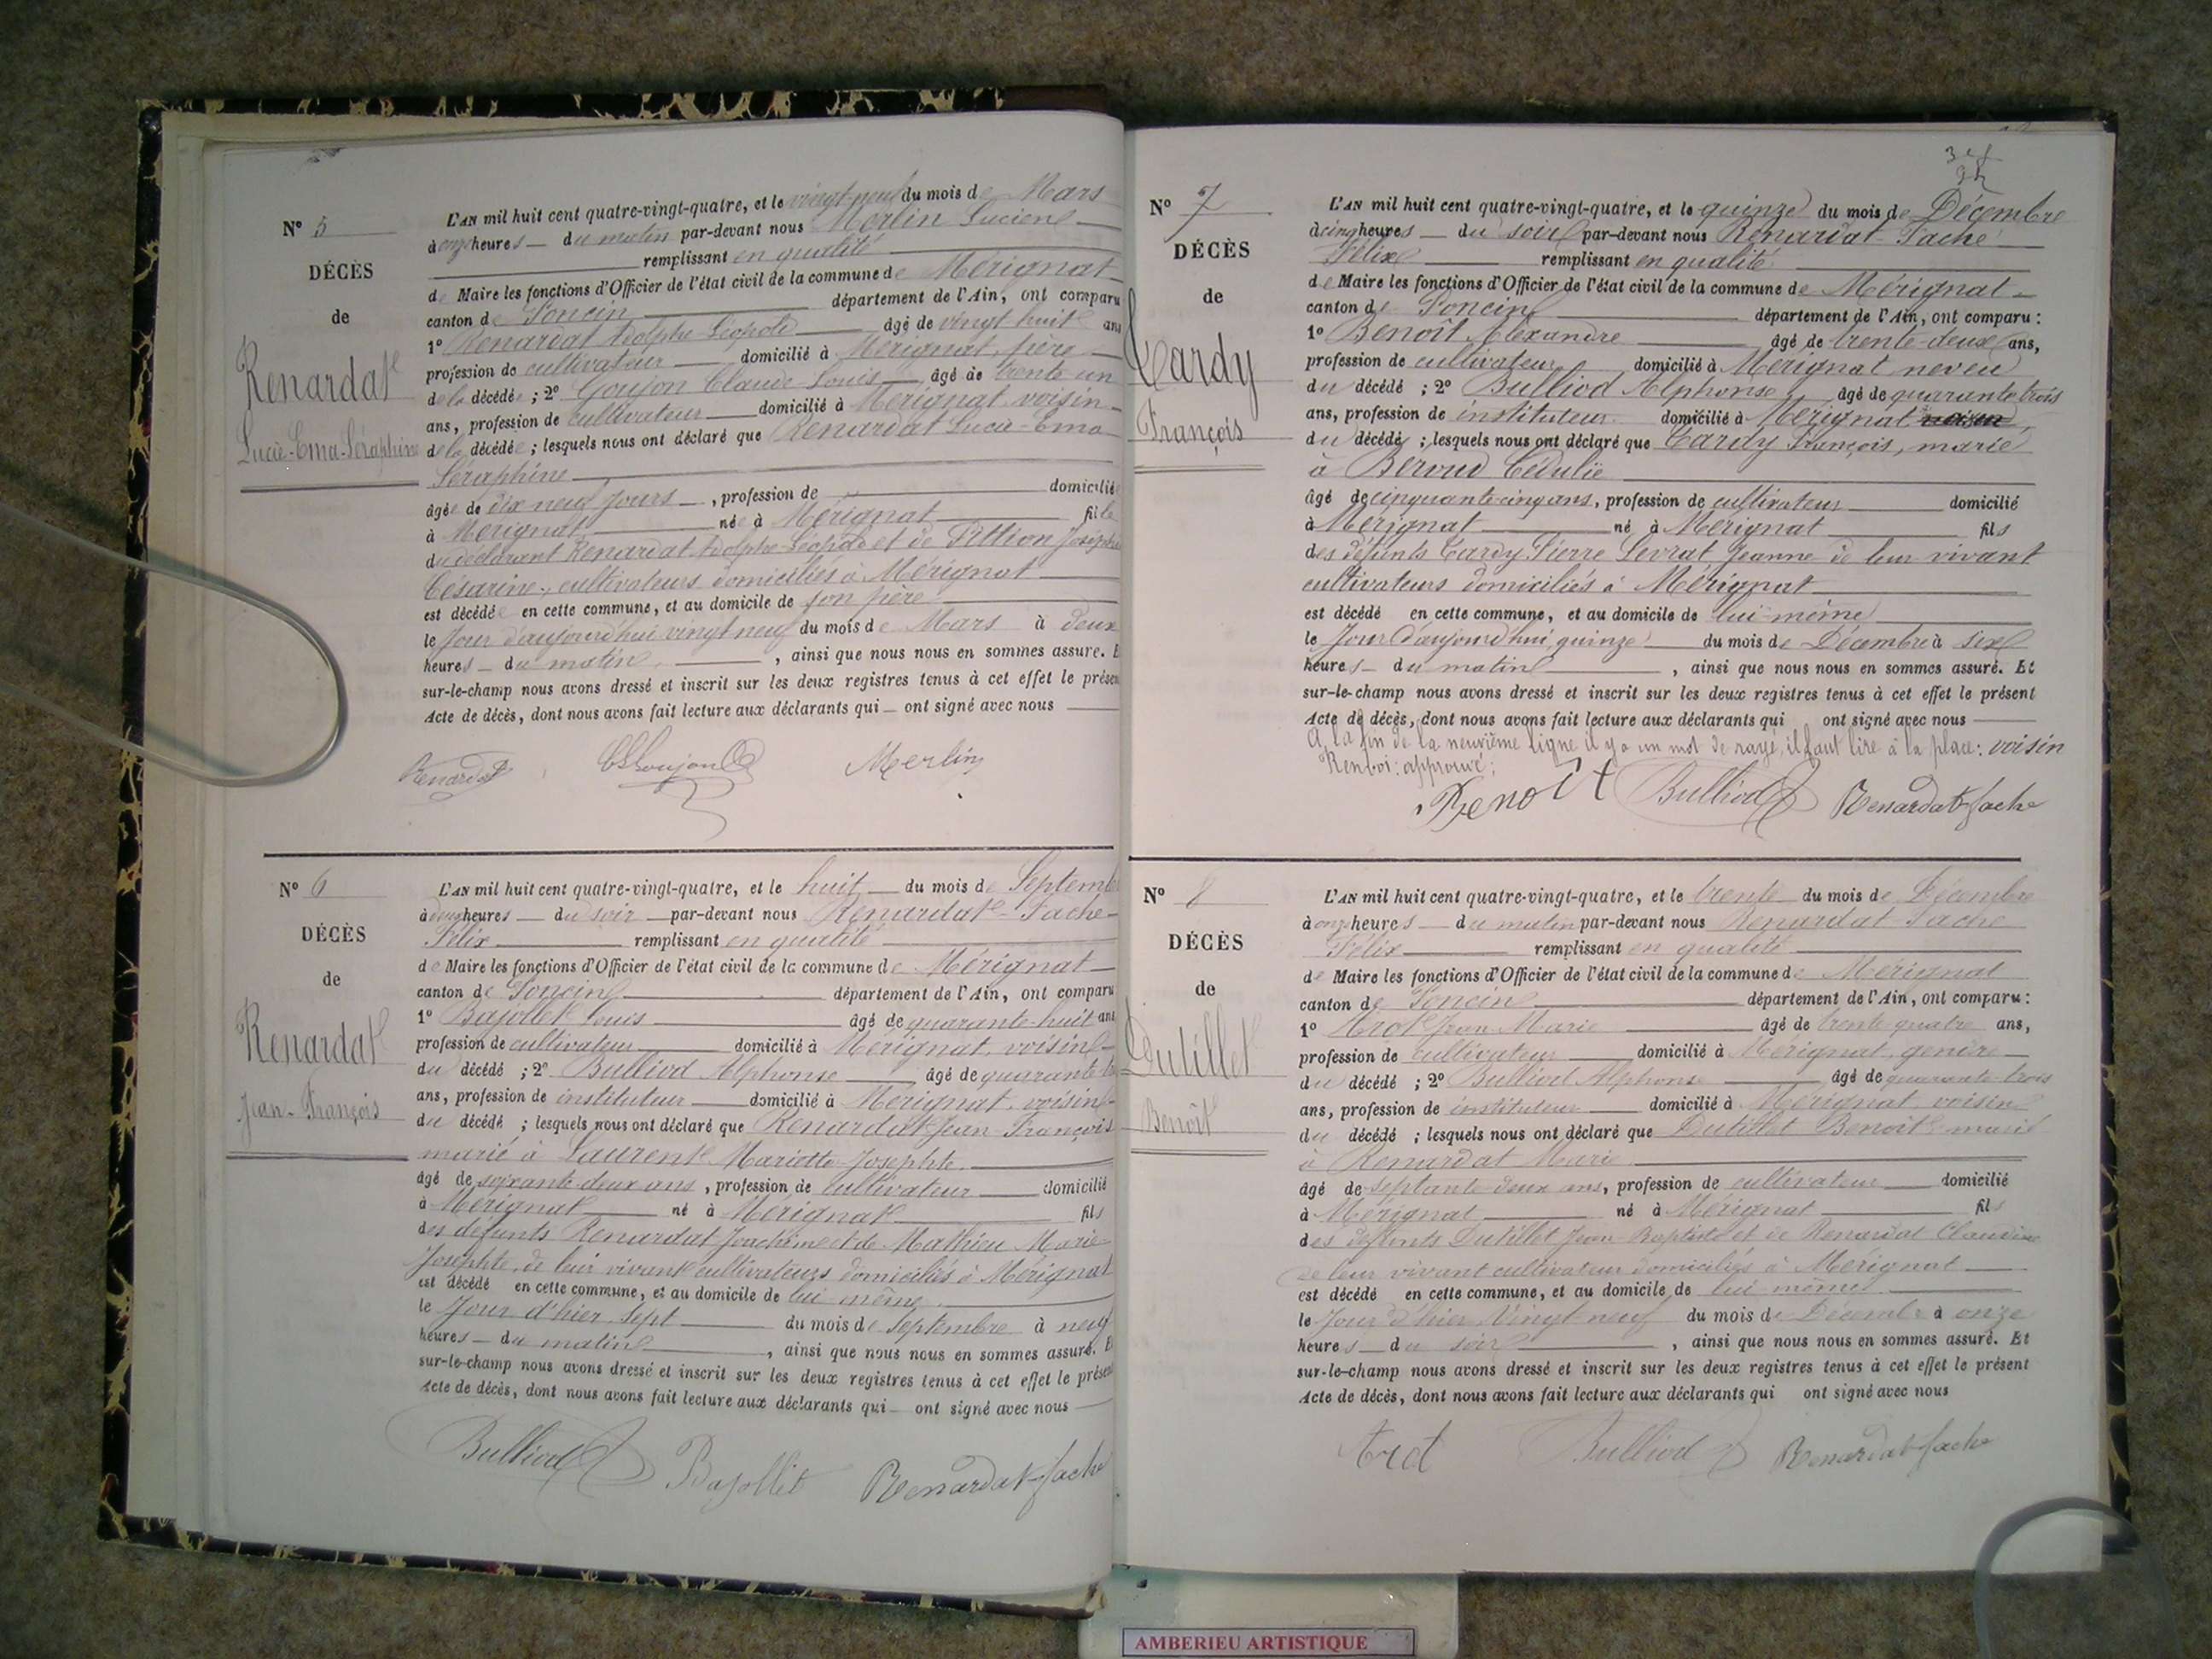 N° 5
DÉCÈS
de
Renardat
Lucie-Ema-Séraphine
L'AN mil huit cent quatre-vingt-quatre, et le vingt-neuf du mois de Mars
à onze heures du matin par-devant nous Merlin Lucien
remplissant en qualité
de Maire les fonctions d'Officier de l'état civil de la commune de Mérignat
canton de Poncin département de l'Ain, ont comparu
1° Renardat Adolphe Léopold âgé de vingt huit ans
profession de cultivateur domicilié à Mérignat, père
de la décédée ; 2° Goujon Claude Louis âgé de trente un
ans, profession de cultivateur domicilié à Mérignat voisin
de la décédée ; lesquels nous ont déclaré que Renardat Lucie-Ema
Séraphine
âgée de dix neuf jours, profession de domicilié
à Mérignat née à Mérignat fille
du déclarant Renardat Adolphe Léopold et de Pittion Josephte
Césarine, cultivateurs domiciliés à Mérignat
est décédée en cette commune, et au domicile de son père
le Jour d'aujourd'hui vingt neuf du mois de Mars à deux
heures du matin, ainsi que nous nous en sommes assuré. E
sur-le-champ nous avons dressé et inscrit sur les deux registres tenus à cet effet le présen
Acte de décès, dont nous avons fait lecture aux déclarants qui ont signé avec nous
Renardat CLGoujon Merlin
N° 6
DÉCÈS
de
Renardat
Jean-François
L'AN mil huit cent quatre-vingt-quatre, et le huit du mois de Septemb
à heures du soir par-devant nous Renardat-Fache
Félix remplissant en qualité
de Maire les fonctions d'Officier de l'état civil de la commune de Mérignat
canton de Poncin département de l'Ain, ont comparu
1° Bajollet Louis âgé de quarante-huit ans
profession de cultivateur domicilié à Mérignat, voisin
du décédé ; 2° Bulliod Alphonse âgé de quarante
ans, profession de instituteur domicilié à Mérignat, voisin
du décédé ; lesquels nous ont déclaré que Renardat Jean François
marié à Laurent Mariette Josephte
âgé de soixante-deux ans, profession de cultivateur domicilié
à Mérignat né à Mérignat fils
des défunts Renardat Joachim et de Mathieu Marie
Josephte, de leur vivant cultivateurs domiciliés à Mérignat
est décédé en cette commune, et au domicile de lui même
le Jour d'hier, Sept du mois de Septembre à neuf
heures du matin, ainsi que nous nous en sommes assuré. E
sur-le-champ nous avons dressé et inscrit sur les deux registres tenus à cet effet le présen
Acte de décès, dont nous avons fait lecture aux déclarants qui ont signé avec nous
Bulliod Bajollet Renardat-fache
N° 7
DÉCÈS
de
Cardy
François
L'AN mil huit cent quatre-vingt-quatre, et le quinze du mois de Décembre
à cinq heures du soir par-devant nous Renardat-Fache
Félix remplissant en qualité
de Maire les fonctions d'Officier de l'état civil de la commune de Mérignat
canton de Poncin département de l'Ain, ont comparu :
1° Benoît Alexandre âgé de trente-deux ans,
profession de cultivateur domicilié à Mérignat neveu
du décédé ; 2° Bulliod Alphonse âgé de quarante trois
ans, profession de instituteur domicilié à Mérignat
du décédé ; lesquels nous ont déclaré que Cardy François, marié
à Beroud Cédulie
âgé de cinquante-cinq ans, profession de cultivateur domicilié
à Mérignat né à Mérignat fils
des défunts Cardy Pierre Levrat Jeanne de leur vivant
cultivateurs domiciliés à Mérignat
est décédé en cette commune, et au domicile de lui-même
le Jour d'aujourd'hui, quinze du mois de Décembre à six
heures du matin, ainsi que nous nous en sommes assuré. Et
sur-le-champ nous avons dressé et inscrit sur les deux registres tenus à cet effet le présent
Acte de décès, dont nous avons fait lecture aux déclarants qui ont signé avec nous
A la fin de la neuvième ligne il y a un mot de rayé, il faut lire à la place : voisin
Renvoi : approuvé ;
Benoit Bulliod Renardat-fache
N° 8
DÉCÈS
de
Dutillet
Benoît
L'AN mil huit cent quatre-vingt-quatre, et le trente du mois de Décembre
à onze heures du matin par-devant nous Renardat Fache
Félix remplissant en qualité
de Maire les fonctions d'Officier de l'état civil de la commune de Mérignat
canton de Poncin département de l'Ain, ont comparu :
1° Jean Marie âgé de trente quatre ans,
profession de cultivateur domicilié à Mérignat, gendre
du décédé ; 2° Bulliod Alphonse âgé de quarante-trois
ans, profession de instituteur domicilié à Mérignat voisin
du décédé ; lesquels nous ont déclaré que Dutillet Benoît marié
à Renardat Marie
âgé de septante deux ans, profession de cultivateur domicilié
à Mérignat né à Mérignat fils
des défunts Dutillet Jean Baptiste et de Renardat Claudine
de leur vivant cultivateur domiciliés à Mérignat
est décédé en cette commune, et au domicile de lui même
le Jour d'hier Vingt neuf du mois de Décembre à onze
heures du soir, ainsi que nous nous en sommes assuré. Et
sur-le-champ nous avons dressé et inscrit sur les deux registres tenus à cet effet le présent
Acte de décès, dont nous avons fait lecture aux déclarants qui ont signé avec nous
Bulliod Renardat-fache
AMBERIEU ARTISTIQUE